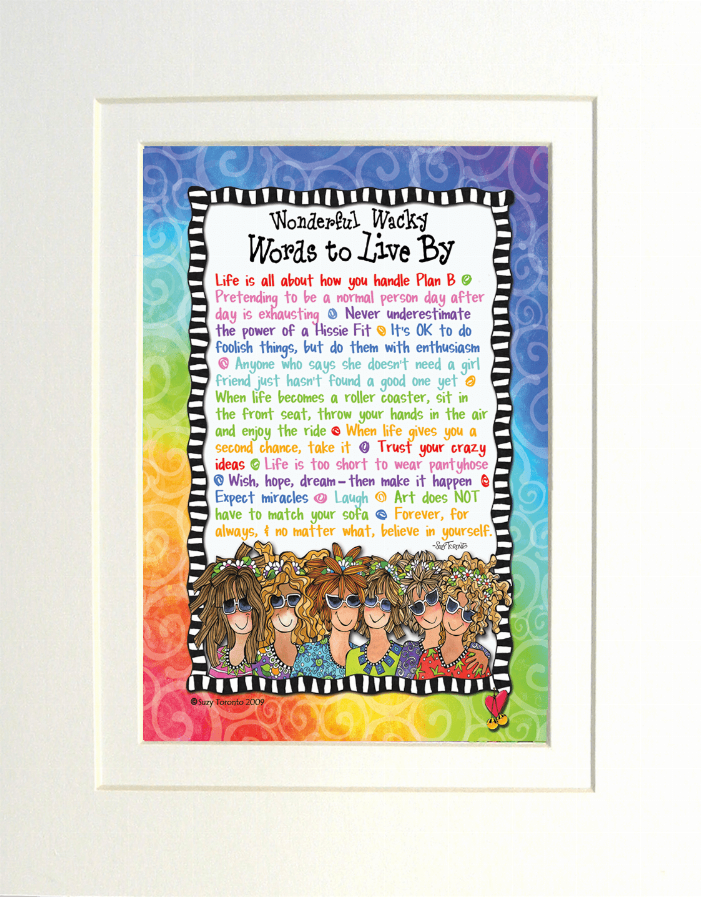 Wonderful Wacky
Words to Live By
Life is all about how you handle Plan B
Pretending to be a normal person day after
day is exhausting Never underestimate
the power of a Hissie Fit It's OK to do
foolish things, but do them with enthusiasm
Anyone who says she doesn't need a girl
friend just hasn't found a good one yet
When life becomes a roller coaster, sit in
the front seat, throw your hands in the air
and enjoy the ride When life gives you a
second chance, take it Trust your crazy
ideas Life is too short to wear pantyhose
Wish, hope, dream—then make it happen
Expect miracles Laugh Art does NOT
have to match your sofa Forever, for
always, & no matter what, believe in yourself.
-Suzy Toronto
©Suzy Toronto 2009